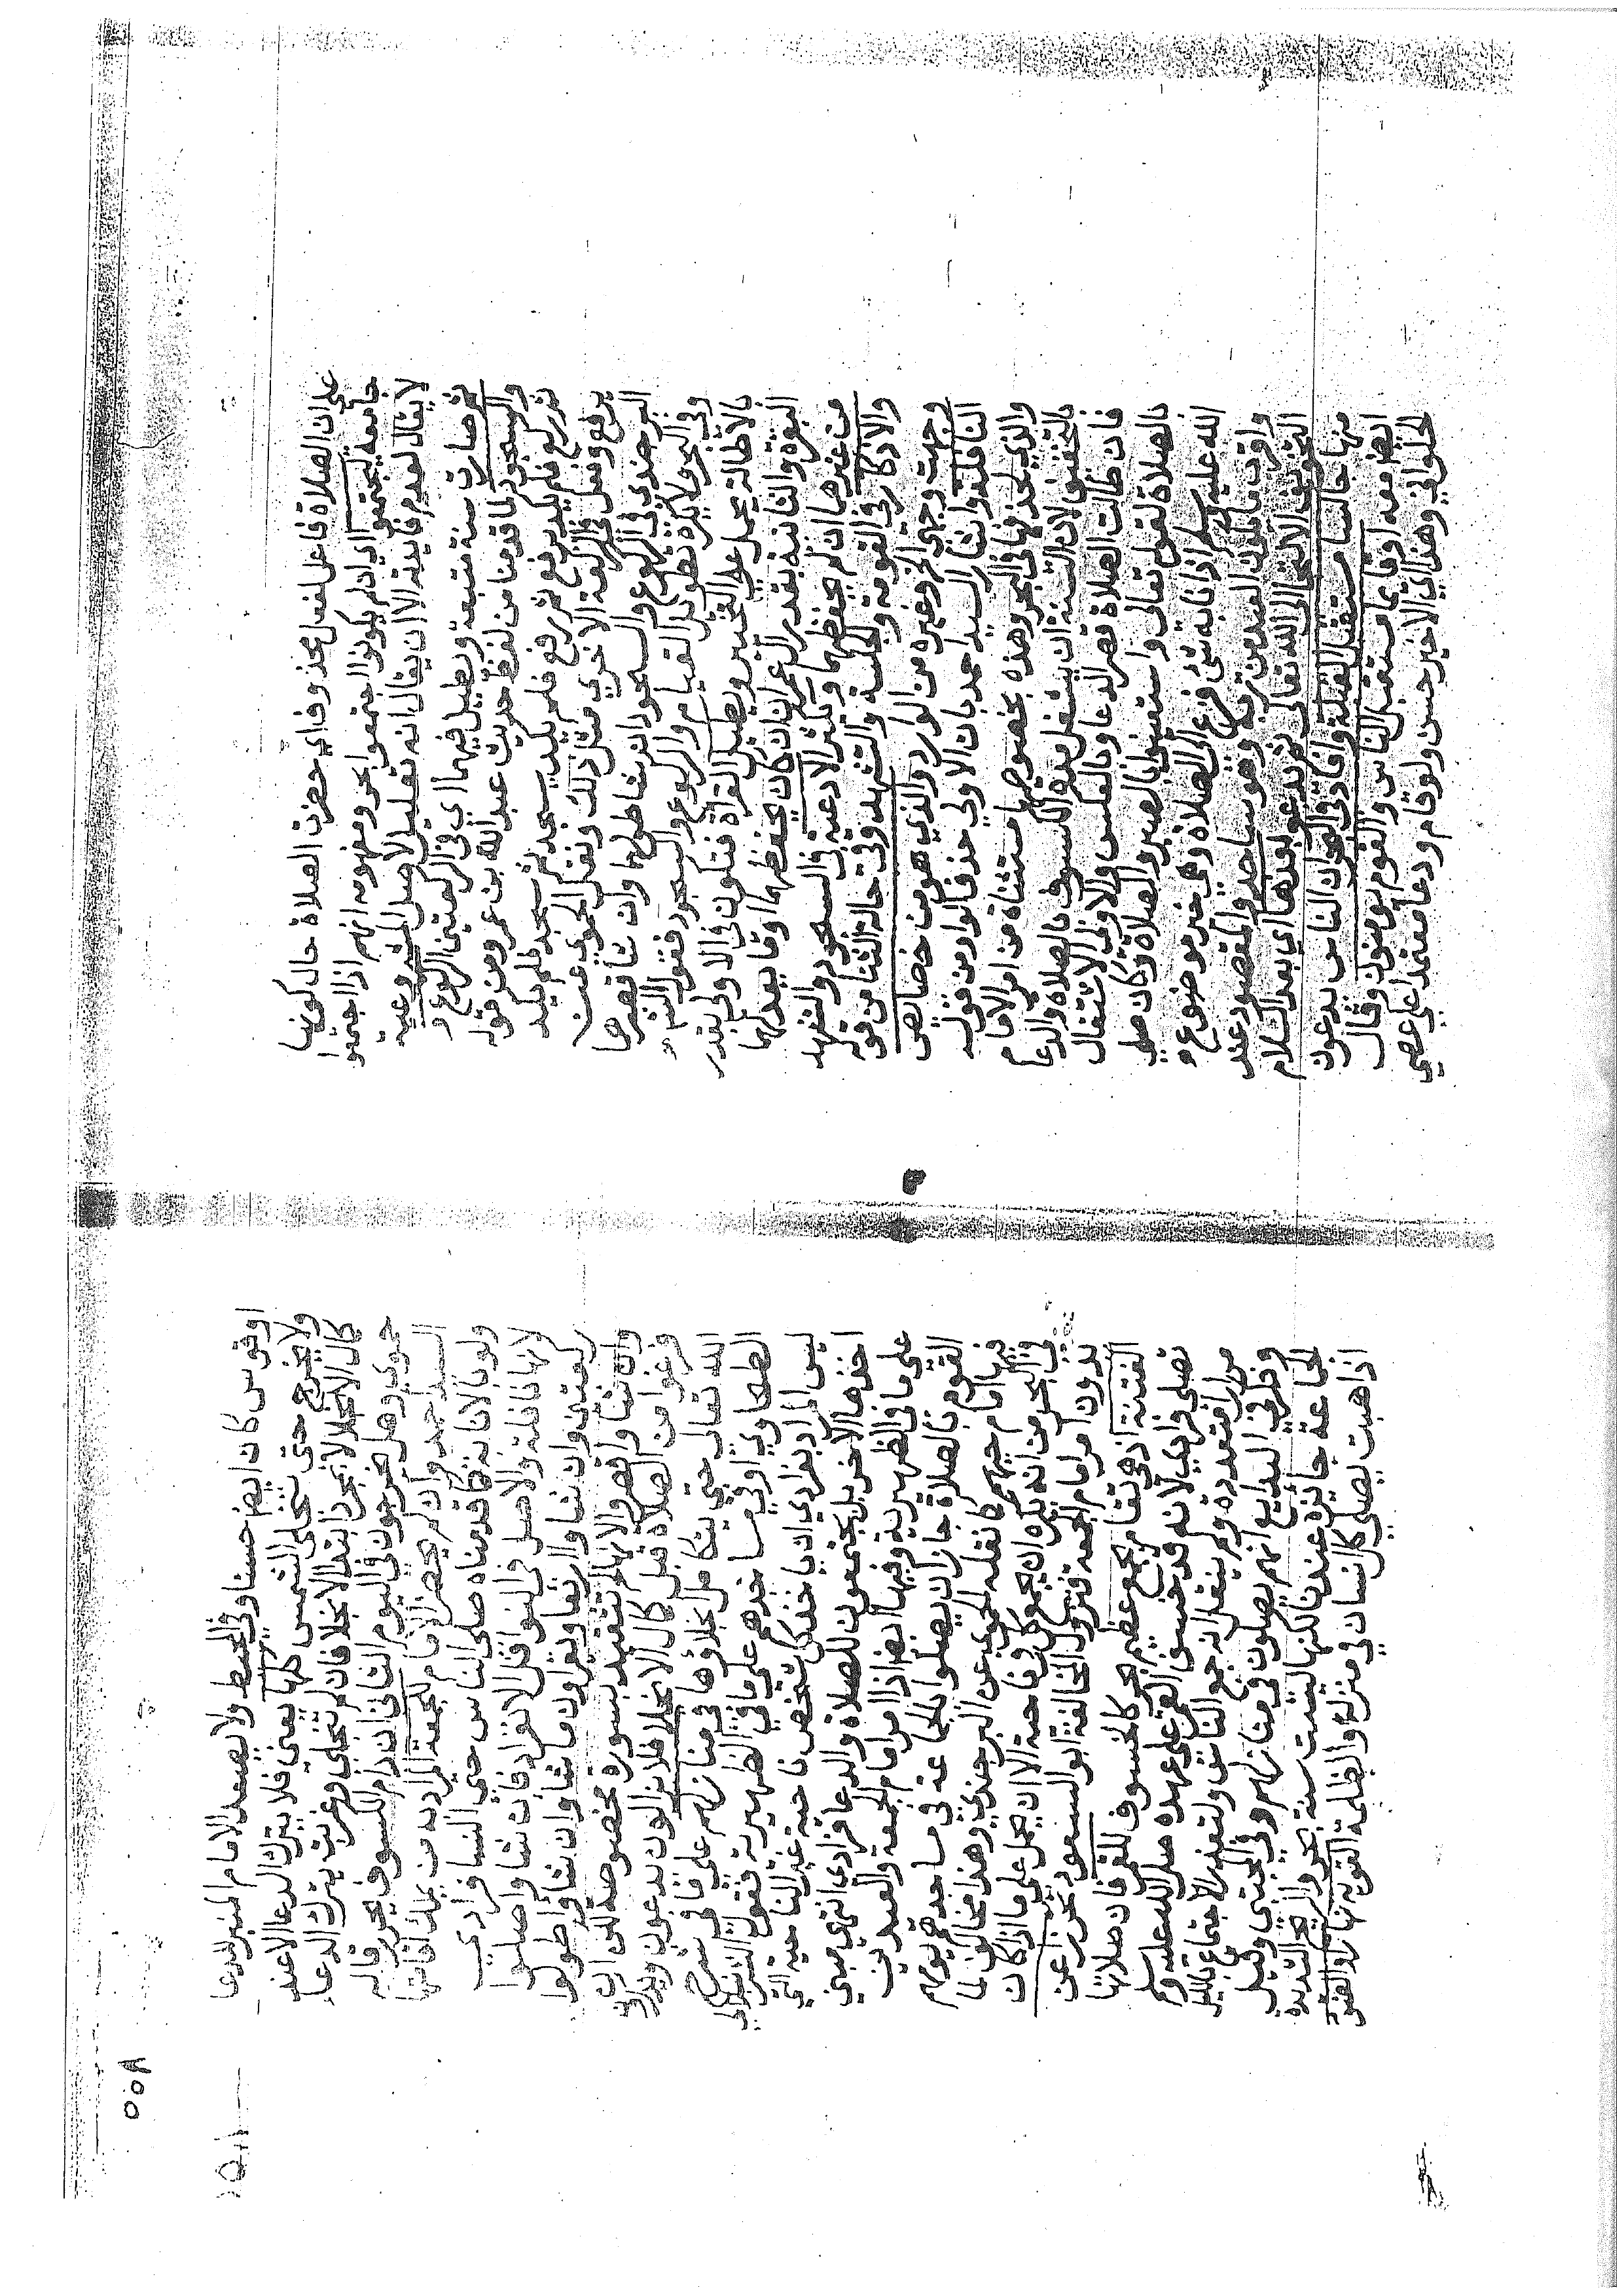 على ان الصلاة فاعل لفعل محذوف اي حضرت الصلاة حال كونها
جامعة ليجتمعوا اي ان لم يكونوا اجتمعوا بحر ومفهومه انهم اذا اجتمعوا
لا ينادى لعدم فايدته الا ان يقال انه تعليل لاصل المشروعية
ثم صارت سنة متبعة ويطيل فيها اي في الركعتين الركوع و
والسجود لما قدمنا من لفظ حديث عبد الله بن عمر ومن قوله
ثم ركع فلم يكد يرفع ثم رفع فلم يكد يسجد ثم سجد فلم يكد
يرفع وفعل في الركعة الاخرى مثل ذلك ونقل الحموي عن
البرجندي في الركوع والسجود ان شا طولها وان شا قصرها
وفي البحر ولا يكره تطويل القيام والركوع والسجود فقول
بالاطالة يحمل على التخيير ويطيل القراة فتكون في الاولى بقدر
البقرة والثانية بقدر ال عمران ان كان يحفظهما او ما يعدلهما
من غيرها ان لم يحفظهما ويكثر الادعية في السجود والتشهد
والاذكار في القومة والجلسة والتشهد وفي حالة الثنا من قوله
وجهت وجهي الخ وغيره من الوارد والذي هو من خصائص
النافلة وانشار السيد احمد بان الاولى حذف الوارد من قوله
والذي يحذفها في البحر وهذه بخصوصها مستثناة من امر الامام
بالتخفيف لان السنة ان يشتغل مدة الكسوف بالصلاة والدعا
فان طالت الصلاة قصر الدعا وبالعكس والاولى الاشتغال
بالصلاة لقوله تعالى واستعينوا بالصبر والصلاة وكان صلى
الله عليه وسلم اذا نابه شي فزع الى الصلاة وهي خير موضوع
واقرب ما يكون العبد من ربه وهو ساجد والمقصود عند
التخويف الالتجا الى الله تعالى ثم يدعو بعدها اي بعد السلام
منها جالسا مستقبل القبلة وافاد في البحر ان الناس يدعون
ايضا معه او قايما مستقبل الناس والقوم يؤمنون وقال
الحلواني وهذا اي الاخير حسن ولو قام ودعا معتمدا على عصي
او قوس كان ايضا حسنا وفي المحيط ولا يصعد الامام المنبر للدعا
ولا يخرج حتى تنجلي الشمس كلها يعني فلا يترك الدعا الا عند
كمال الانجلا لا بمجرد ابتدا الانجلا فان لم تنجلي وغربت يترك الدعا
حموي وهل يخرجون في اليوم الثاني ان دام الكسوف يحرر قاله
السيد احمد وان لم يحضر الامام للجمعة المراد به من يملك اقامتها
ولو بالانابة كما قدمناه صلى الناس حتى النسا فرادى
لانها نافلة والاصل في النوافل الانفراد فان شا واصلوا
ركعتين وان شاوا اربعا ويقراون ما شاوا وان شاوا طولوا
وان شاوا قصروا لانها لم تتقيد بسورة مخصوصة الى ان
فرغوا من الصلاة قبل كمال الانجلا فلا يزالون يدعون ويذكرون
الله تعالى حتى يتكامل انجلاوها في منازلهم على ما في شرح
الطحاوي او في مساجدهم على ما في الظهيرية فقول
ليس المراد بفرادى ان ياخذ كل شخص ناحية غير الناحية التي
اخذها الاخر بل يجتمعون للصلاة والدعا فرادى انتهى مبني
على ما في الظهيرية وفيها ايضا اذا امر امام الجمعة والعيدين
القوم بالصلاة جاز ان يصلوا بالجماعة في مساجدهم يوم
فيها امام حيهم كما نقله الحموي عن البرجندي وهذا مخالف لما
في البحر من انه يكره ان يجمع كل في ناحية الا ان يحمل على ما اذا كان
بدون امر امام الجمعة فتزول المخالفة ابو السعود تحرزا عن
الفتنة اذ هي تقام بجمع عظيم بحر كالخسوف للقمر فان صلاتها
تصلى فرادى لانه قد خسف القمر على عهده صلى الله عليه وسلم
مرارا متعددة ولم ينقل انه جمع الناس ولتعذر الاجتماع بالليل
وظاهر البدايع انهم يصلون في منازلهم وفي المجتبى وقيل
الجماعة جايزة عندنا لكنها ليست سنة بحر والريح الشديدة
اذا هبت يصلى كل انسان في منزله والظلمة القوية نهارا والضو
٥٥٨